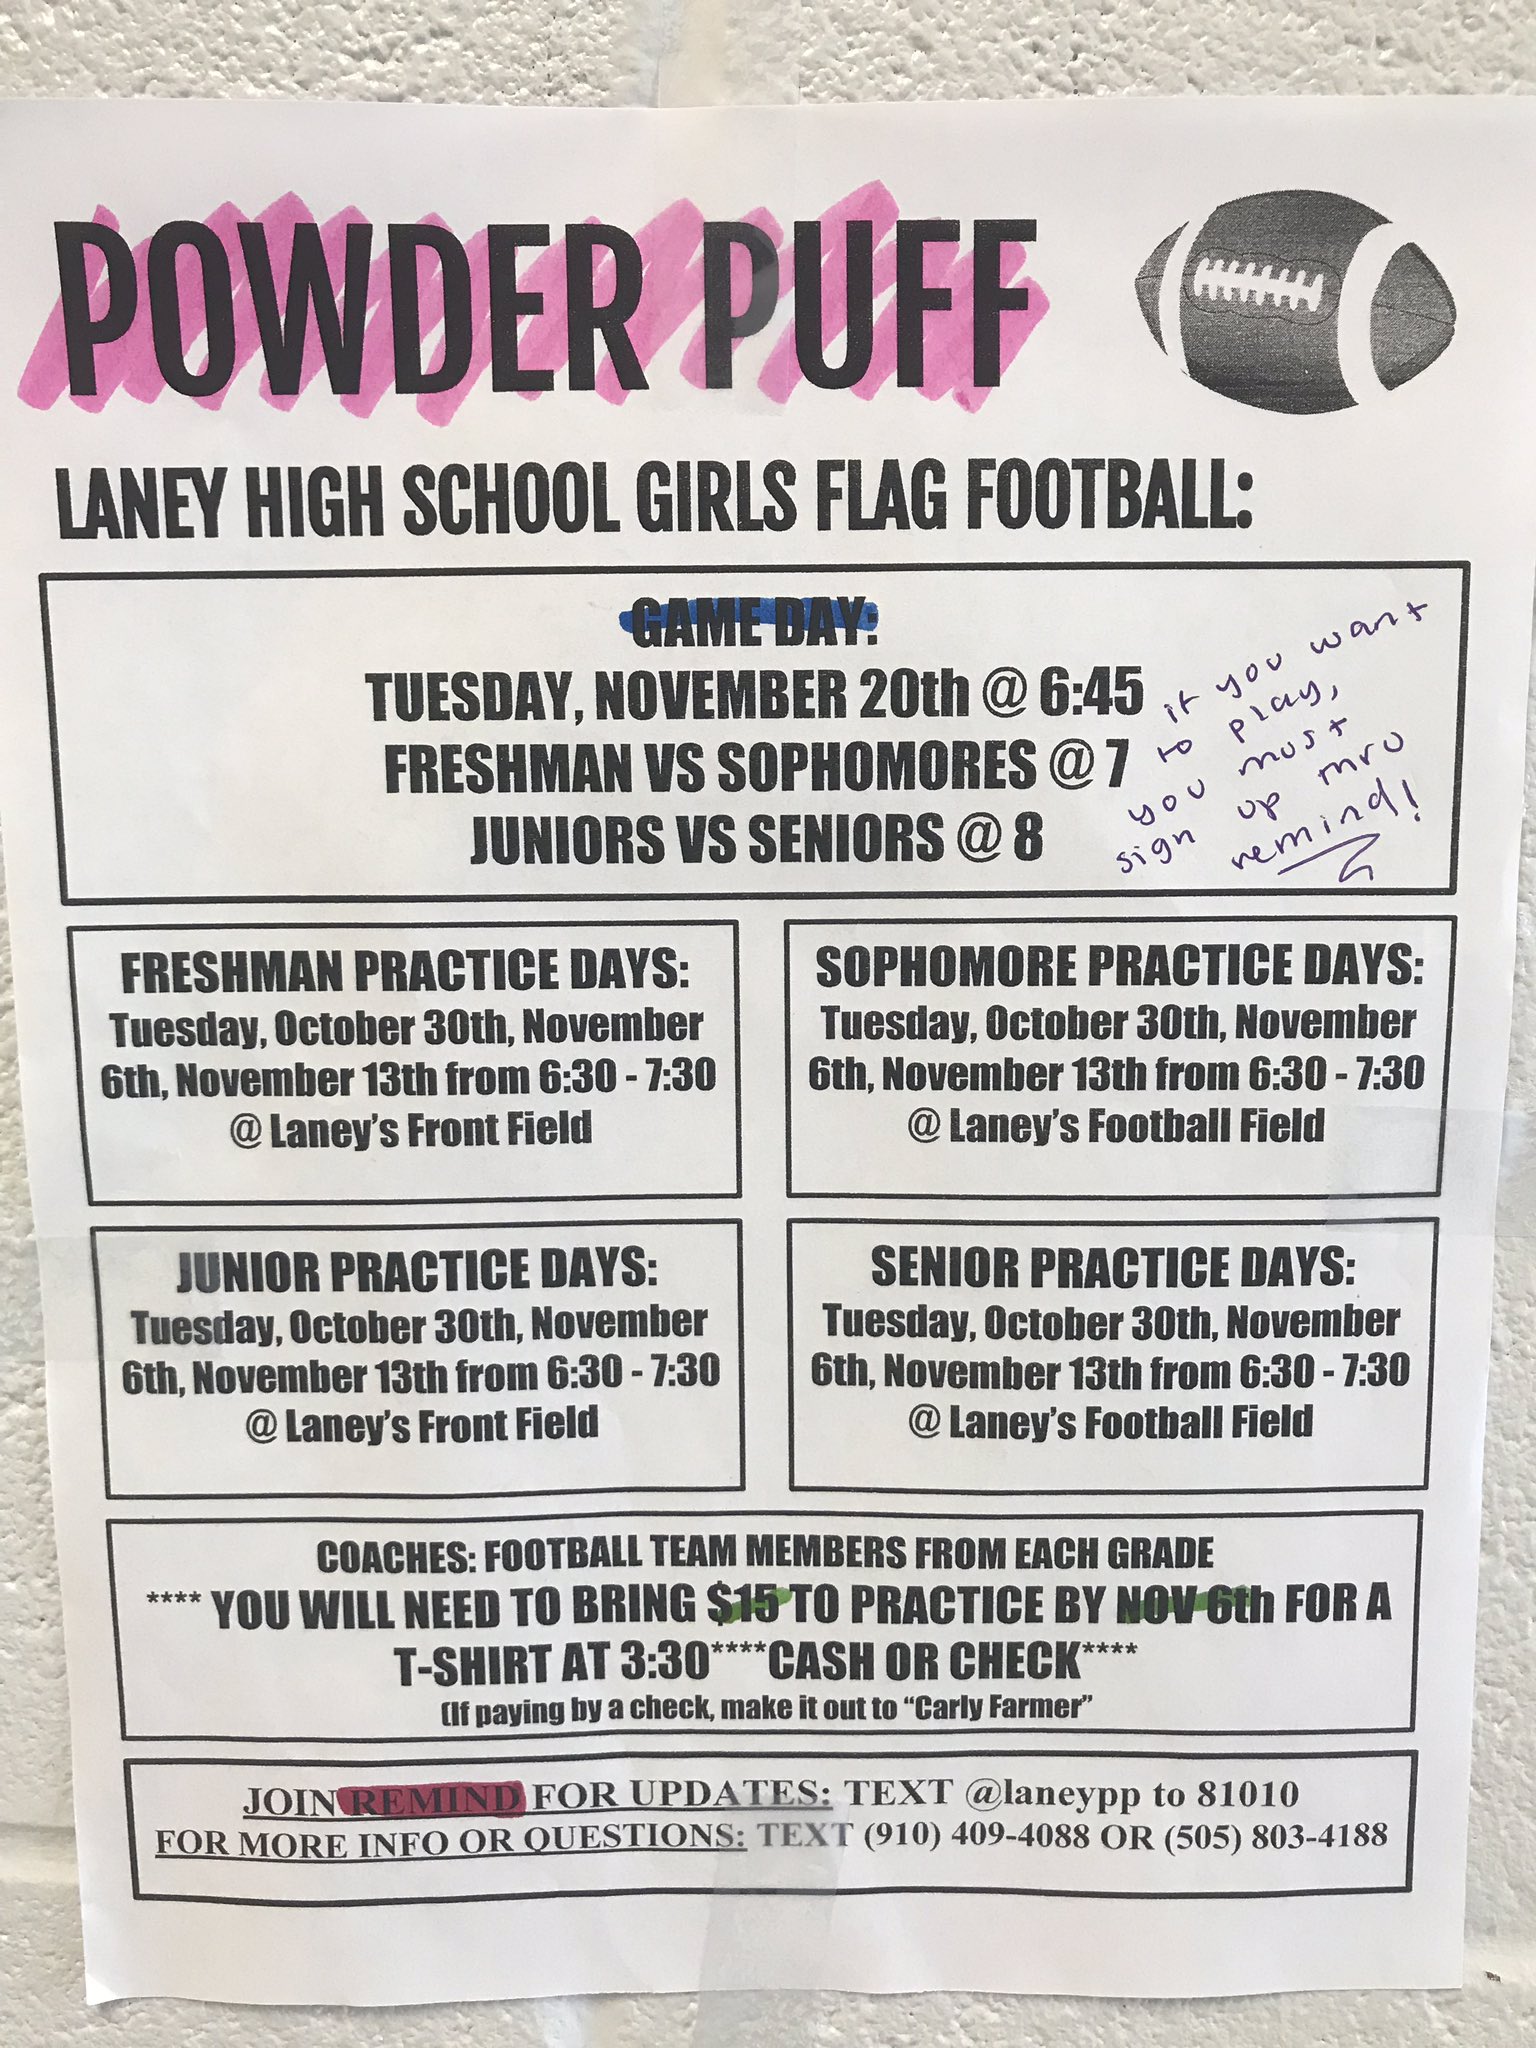 POWDER PUFF
LANEY HIGH SCHOOL GIRLS FLAG FOOTBALL:
GAME DAY:
TUESDAY, NOVEMBER 20th @ 6:45
FRESHMAN VS SOPHOMORES @ 7
JUNIORS VS SENIORS @ 8
if you want
to play,
you must
sign up thru
remind!
FRESHMAN PRACTICE DAYS:
Tuesday, October 30th, November
6th, November 13th from 6:30 - 7:30
@ Laney's Front Field
SOPHOMORE PRACTICE DAYS:
Tuesday, October 30th, November
6th, November 13th from 6:30 - 7:30
@ Laney's Football Field
JUNIOR PRACTICE DAYS:
Tuesday, October 30th, November
6th, November 13th from 6:30 - 7:30
@ Laney's Front Field
SENIOR PRACTICE DAYS:
Tuesday, October 30th, November
6th, November 13th from 6:30 - 7:30
@ Laney's Football Field
COACHES: FOOTBALL TEAM MEMBERS FROM EACH GRADE
**** YOU WILL NEED TO BRING $15 TO PRACTICE BY NOV 6th FOR A
T-SHIRT AT 3:30****CASH OR CHECK****
(If paying by a check, make it out to "Carly Farmer"
JOIN REMIND FOR UPDATES: TEXT @laneypp to 81010
FOR MORE INFO OR QUESTIONS: TEXT (910) 409-4088 OR (505) 803-4188